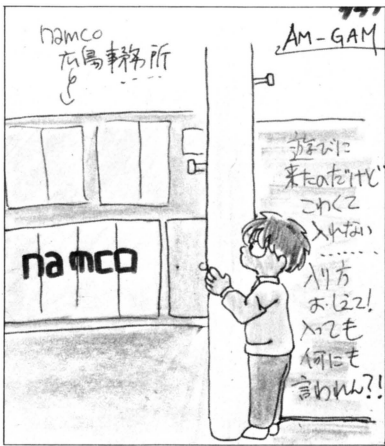 namco
広島事務所
‥‥‥
AM-GAM
namco
遊びに
来たのだけど
こわくて
入れない
‥‥‥‥
入り方
おしえて!
入っても
何にも
言われん?!